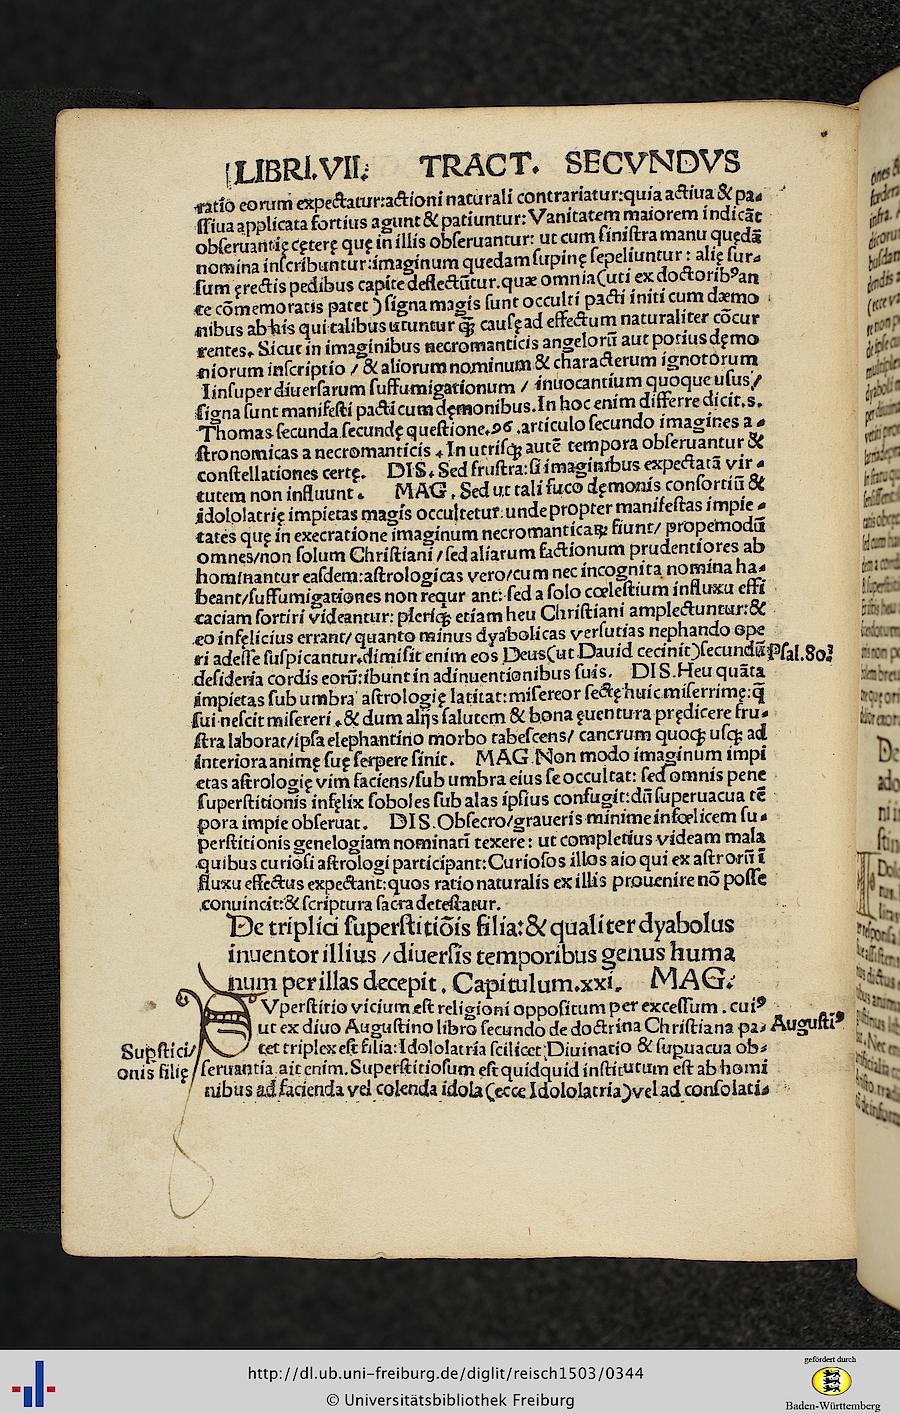 LIBRI.VII. TRACT. SECVNDVS
ratio eorum expectatur:actioni naturali contrariatur:quia actiua & pa-
ssiua applicata fortius agunt & patiuntur: Vanitatem maiorem indicāt
obseruantię cęterę quę in illis obseruantur: ut cum sinistra manu quędā
nomina inscribuntur:imaginum quedam supinę sepeliuntur : alię sur-
sum ęrectis pedibus capite deflectūtur.quæ omnia(uti ex doctoribꝰ an
te cōmemoratis patet ) signa magis sunt occulti pacti initi cum dæmo
nibus ab his qui talibus utuntur ꝙ̄ causę ad effectum naturaliter cōcur
rentes. Sicut in imaginibus necromanticis angelorū aut potius dęmo
niorum inscriptio / & aliorum nominum & characterum ignotorum
Iinsuper diuersarum suffumigationum / inuocantium quoque usus/
signa sunt manifesti pacti cum dęmonibus.In hoc enim differre dicit.s.
Thomas secunda secundę questione.96.articulo secundo imagines a-
stronomicas a necromanticis . In utrisqꝫ autē tempora obseruantur &
constellationes certę. DIS. Sed frustra:si imaginibus expectata vir-
tutem non influunt. MAG. Sed ut tali fuco dęmonis consortiū &
idololatrię impietas magis occultetur:unde propter manifestas impie-
tates quę in execratione imaginum necromanticaꝝ fiunt/ propemodū
omnes/non solum Christiani /sed aliarum factionum prudentiores ab
hominantur easdem:astrologicas vero/cum nec incognita nomina ha-
beant/suffumigationes non requr ant: sed a solo cœlestium influxu effi
caciam sortiri videantur: pleriqꝫ etiam heu Christiani amplectuntur:&
eo infelicius errant/ quanto minus dyabolicas versutias nephando ope
ri adesse suspicantur.dimisit enim eos Deus(ut Dauid cecinit)secundū
Psal.80.
desideria cordis eorū:ibunt in adinuentionibus suis. DIS.Heu quāta
impietas sub umbra astrologię latitat:misereor sectę huic miserrimę:q̄
sui nescit misereri .& dum alijs salutem & bona ęuentura prędicere fru-
stra laborat/ipsa elephantino morbo tabescens/ cancrum quoqꝫ usqꝫ ad
interiora animę suę serpere sinit. MAG.Non modo imaginum impi
etas astrologię vim faciens/sub umbra eius se occultat: sed omnis pene
superstitionis infęlix soboles sub alas ipsius confugit:dū superuacua tē
pora impie obseruat. DIS.Obsecro/graueris minime infœlicem su-
perstitionis genelogiam nominati texere: ut completius videam mala
quibus curiosi astrologi participant:Curiosos illos aio qui ex astrorū ī
fluxu effectus expectant:quos ratio naturalis ex illis prouenire nō posse
conuincit:& scriptura sacra detestatur.
De triplici superstitiōis filia:& qualiter dyabolus
inuentor illius /diuersis temporibus genus huma
num per illas decepit. Capitulum.xxi. MAG.
SVperstitio vicium est religioni oppositum per excessum . cuiꝰ
ut ex diuo Augustino libro secundo de doctrina Christiana pa-
Augustiꝰ
tet triplex est filia:Idololatria scilicet:Diuinatio & supuacua ob-
Supstici/
onis filię
seruantia.ait enim.Superstitiosum est quidquid institutum est ab homi
nibus ad facienda vel colenda idola(ecce Idololatria)vel ad consolati-
http://dl.ub.uni-freiburg.de/diglit/reisch1503/0344
© Universitätsbibliothek Freiburg
gefördert durch
Baden-Württemberg